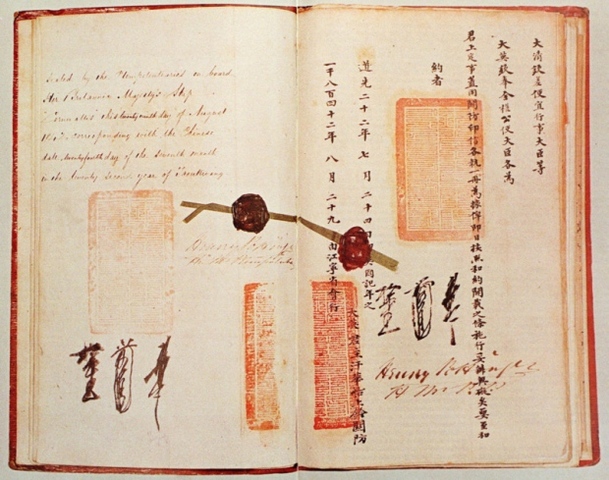 Sealed by the Plenipotentiaries on board
Her Britannic Majesty's Ship
Cornwallis this twenty ninth day of August
corresponding with the Chinese
date, twenty fourth day of the Seventh month
in the twenty second year of Taoukwang
Henry Pottinger
大清欽差便宜行事大臣等
大英欽奉全權公使大臣各為
君上定事蓋用關防印信各執一冊為據俾即日按照和約開載之條施行妥辦無礙矣要至和
約者
道光二十二年七月二十四日英國記年之
一千八百四十二年八月二十九由江寧省會行
大英君主汗華麗士船上鈐關防
Henry Pottinger